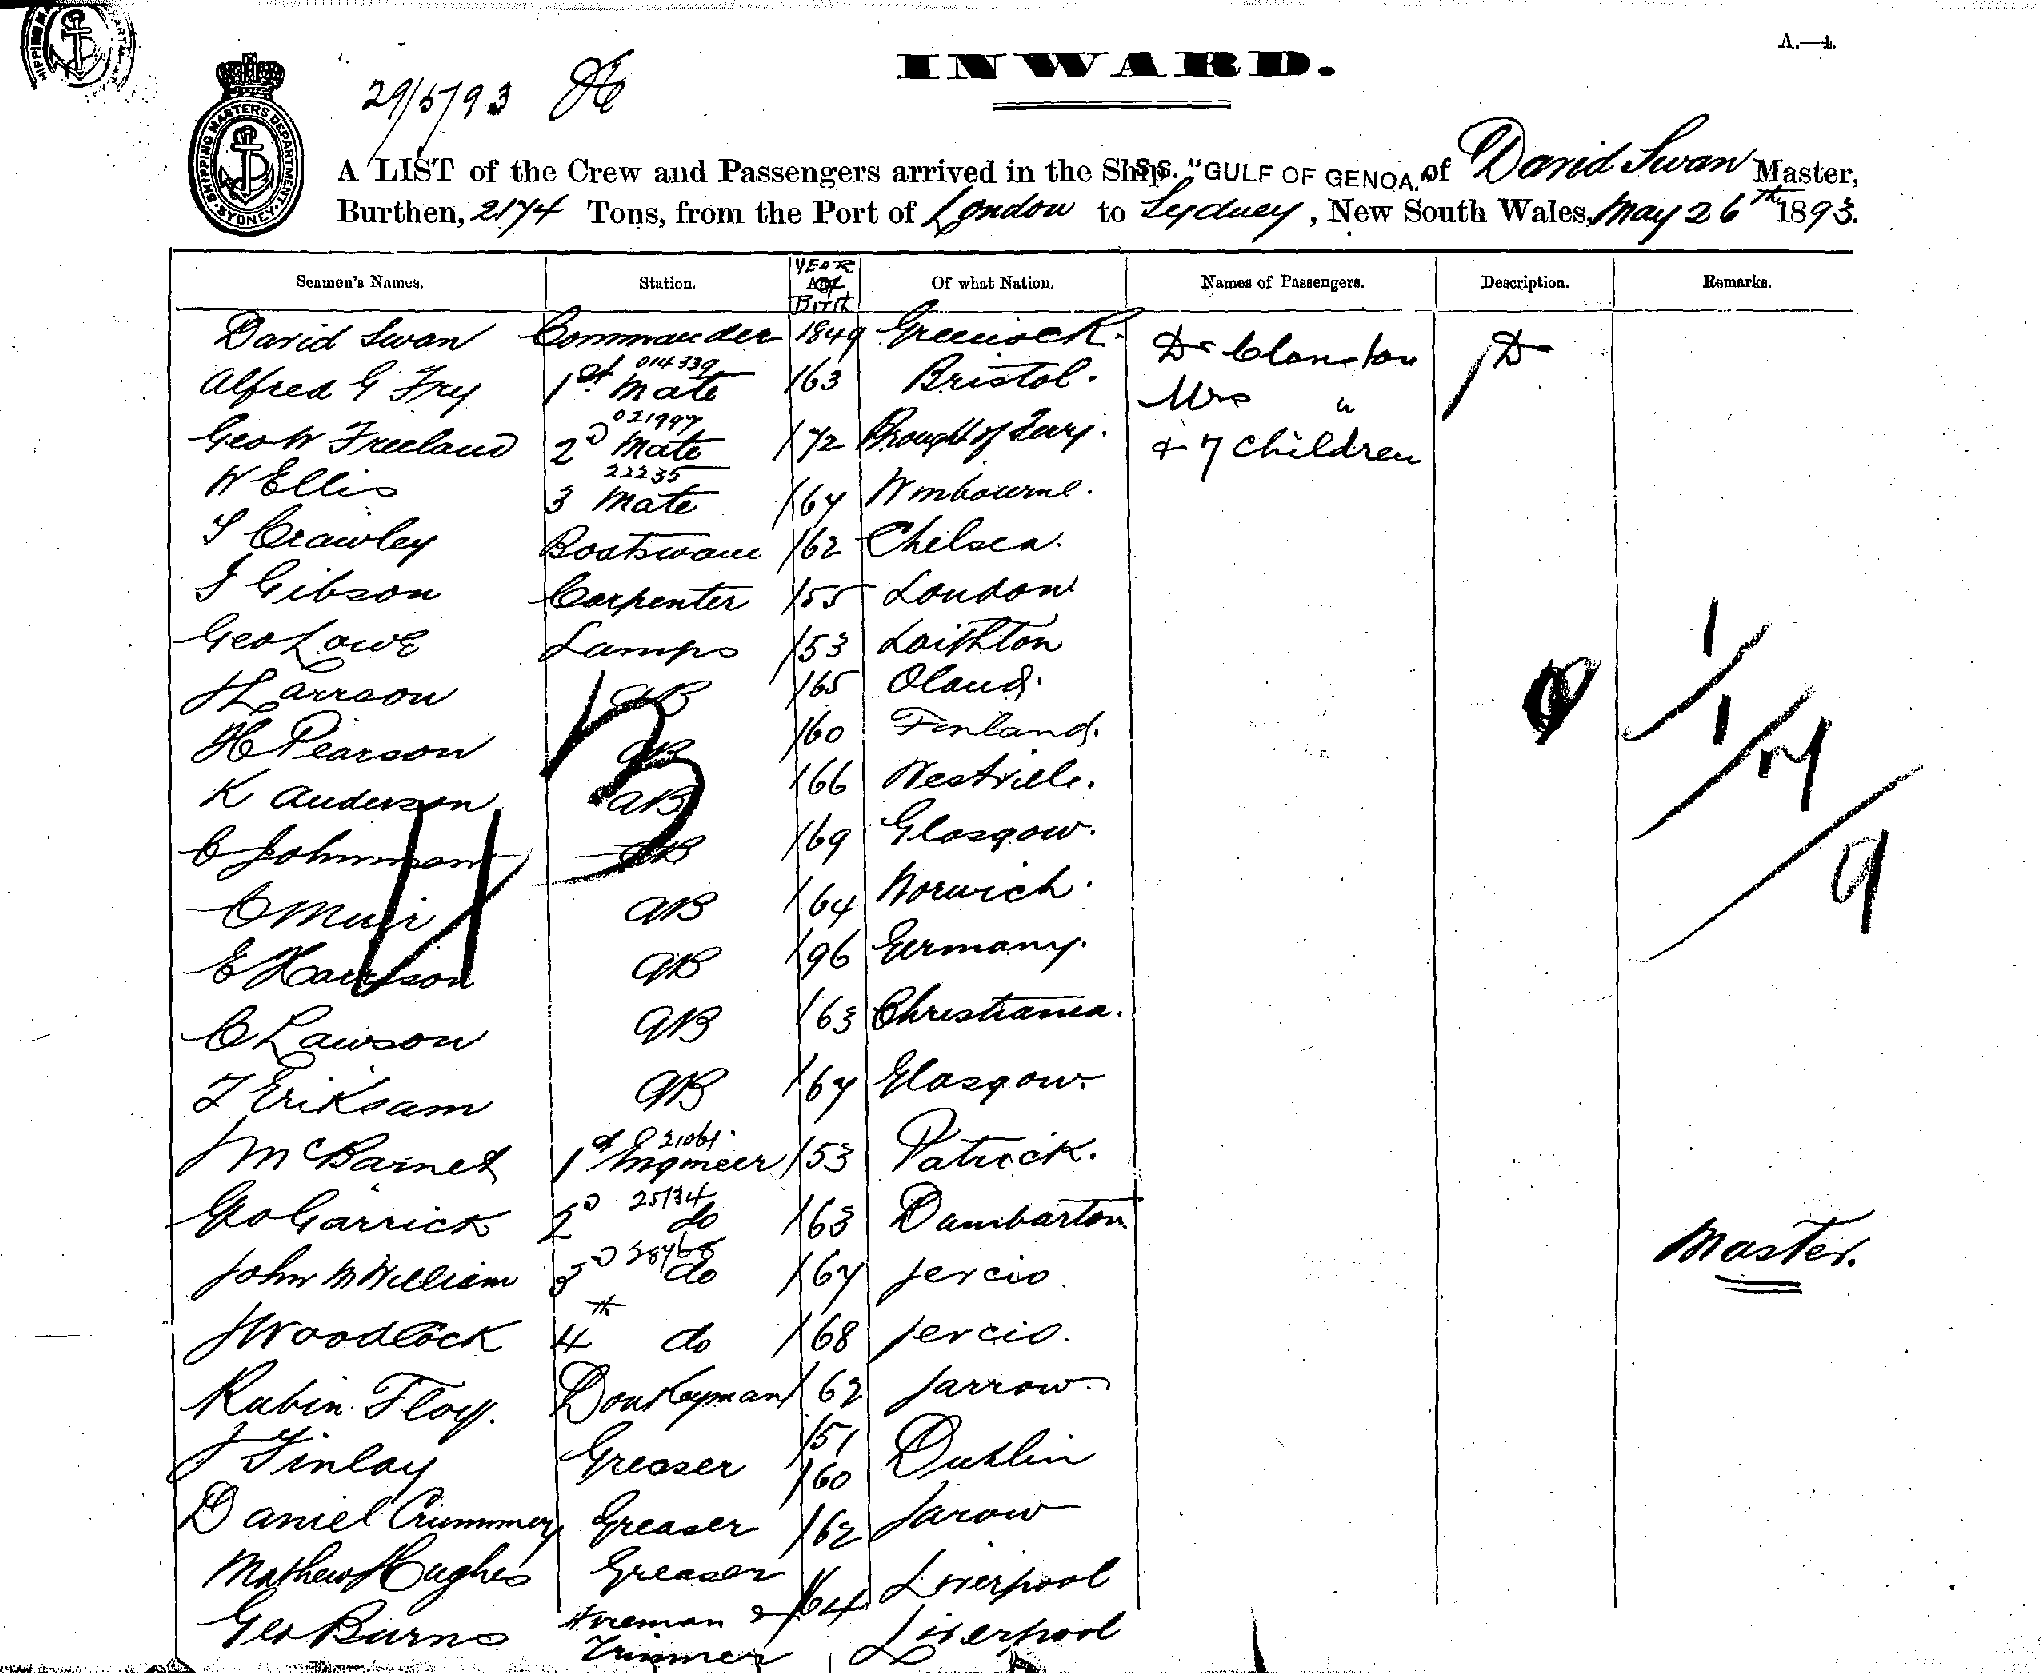 A.—1.
INWARD.
29/5/93
SHIPPING MASTERS DEPARTMENT SYDNEY
A LIST of the Crew and Passengers arrived in the Ship S.S. "GULF OF GENOA" of David Swan Master,
Burthen, 2174 Tons, from the Port of London to Sydney, New South Wales, May 26th 1893.
Seamen's Names. Station. YEAR OF Birth Of what Nation. Names of Passengers. Description. Remarks.
David Swan Commander 1849 Greenock. Dr Clanston
Alfred G Fry 1st Mate 014339 /63 Bristol. Mrs "
Geo W Freeland 2D Mate 021997 /72 Brought of Ferry. + 7 Children
W Ellis 3 Mate 22235 /67 Wmbourne.
Crawley Boatswain /62 Chelsea.
Gibson Carpenter /55 London
Geo Lowe Lamps /53 Laighton
Larrson AB /65 Oland.
H Pearson AB /60 Finland.
K Anderson AB /66
C Johnman AB /69 Glasgow.
C Muir AB /64 Norwich.
E Harrison AB /96 Germany.
C Lawson AB /63 Christiania.
Eriksam AB /67 Glasgow.
J McBarnet 1st Engineer /53 Patrick.
Geo Garrick 2D 25134 do /63 Dumbarton
John McWilliam 3D do /67
Master.
J Woodlock 4th do /68
Rubin Floyy. Donkeyman /62 Jarrow.
J Finlay Greaser /51 /60 Dublin
Daniel Crummey Greaser /62 Jarow
Mathew Hughes Greaser /64 Liverpool
Geo Burns Fireman & Trimmer Liverpool